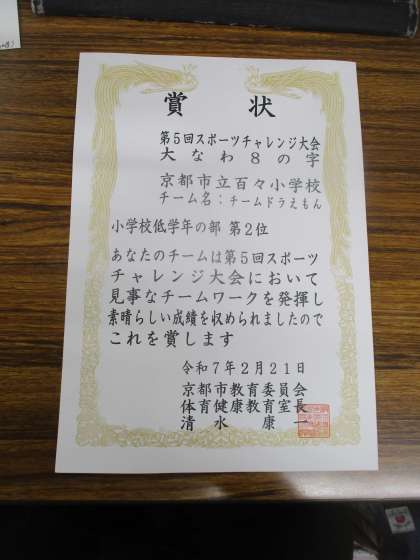 賞状
第5回スポーツチャレンジ大会
大なわ8の字
京都市立百々小学校
チーム名：チームドラえもん
小学校低学年の部 第2位
あなたのチームは第5回スポーツ
チャレンジ大会において
見事なチームワークを発揮し
素晴らしい成績を収められましたので
これを賞します
令和7年2月21日
京都市教育委員会
体育健康教育室長
清水康一